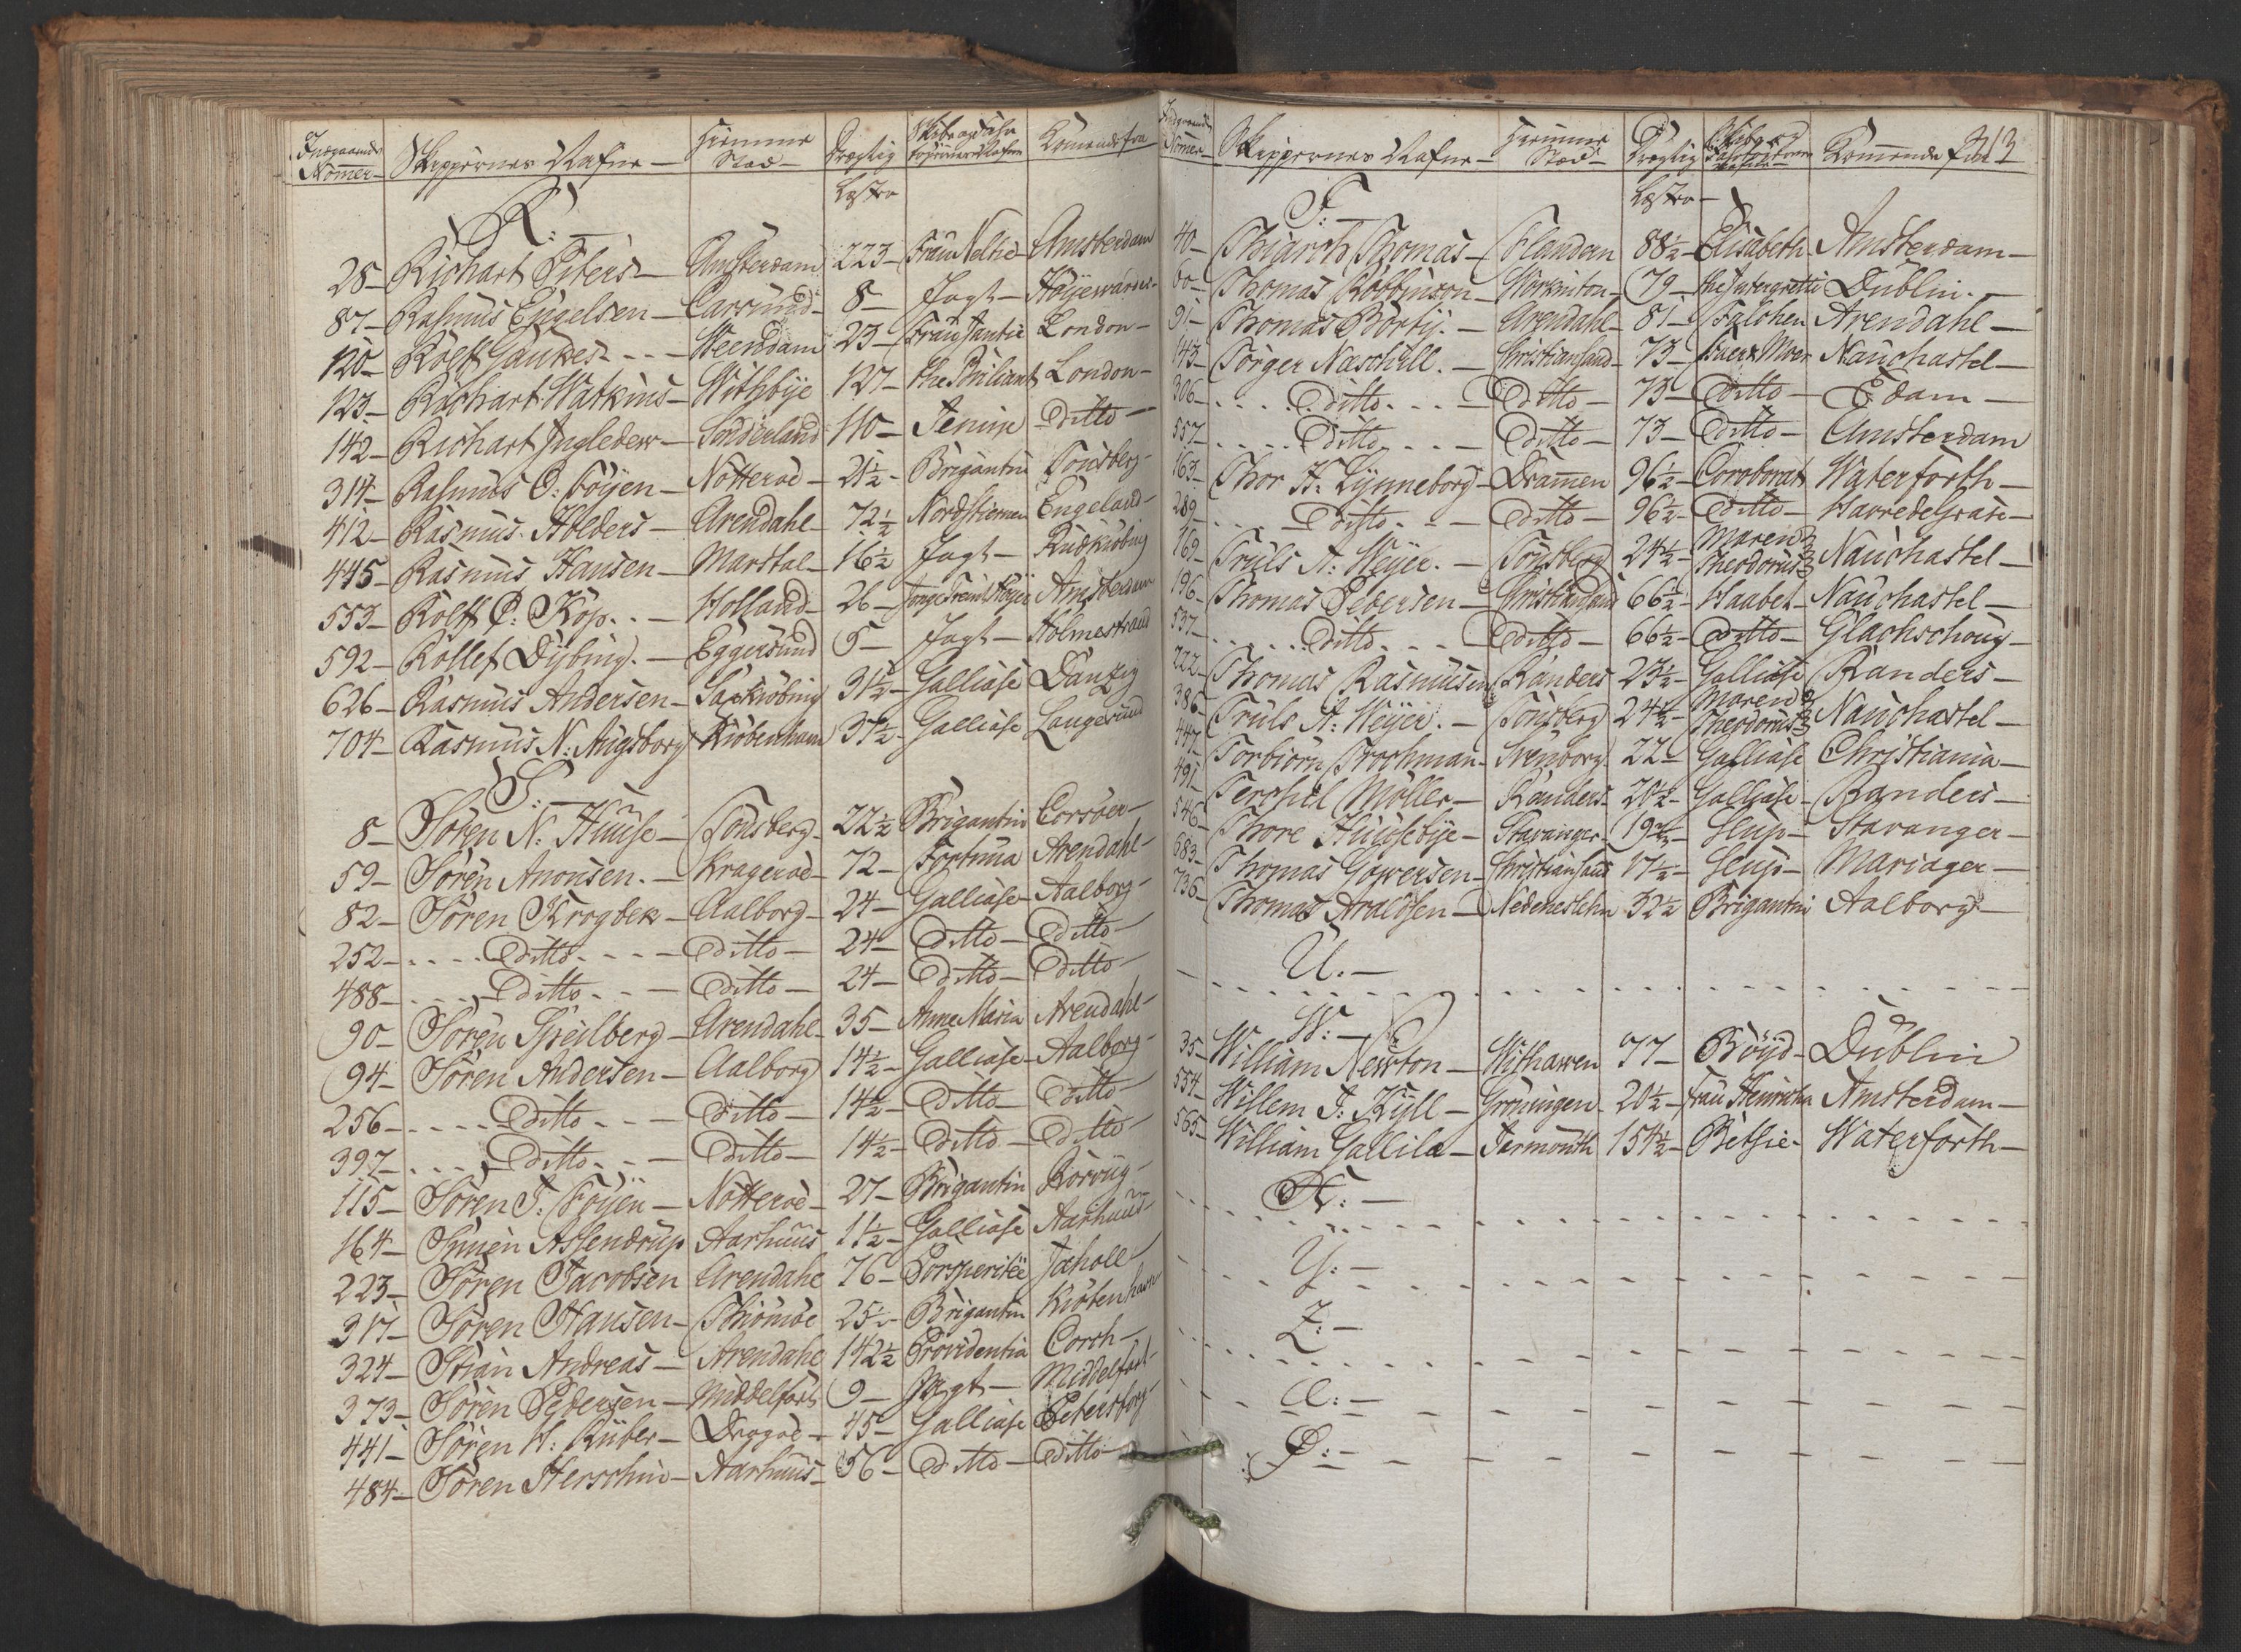 Indgaaende Nommer – Skippernes Nafne – Hiemme Stæd – Drægtig Læster Skibs og Fahr Komende fra
R: –
28 – Richart Piters – Amsterdam 223 – Frau Neltie Amsterdam
87 – Rasmus Engelsen – Carsund – 8 – Jagt –
120 – Rolf Gaukes – Weendam 23 – Frau Jantie London –
123 – Richart Watkins – Withbÿe 127 – the Briliant London –
142 – Richart Ingledew – Sunderland 110 – Ditto –
314 – Rasmus O: Föÿen – Nötteröe – 21½ – Brigantin Tonsberg –
412 – Rasmus Holders – Arendahl – 72½ Nordstiernen Engeland –
445 – Rasmus Hansen – Marstal – 16½ Jagt – Rudkiöbing
553 – Rolff P: Köp – Holland – 26 – Amsterdam
592 – Rollef Dÿbing – Eggersund 5 – Jagt – Holmestrand
626 – Rasmus Andersen – Saxkiöbing 31½ – Galliase Danzig
704 – Rasmus N: Augsborg Kiöbenhavn 37½ – Galliase Langesund
S: –
8 – Sören N: Huuse – Tonsberg – 22½ Brigantin Corsöer –
59 – Sören Anonsen – Krageröe – 72 – Fortuna Arendahl –
82 – Sören Krogbek – Aalborg – 24 – Galliase – Aalborg –
252 – Ditto – Ditto – 24 – Ditto – Ditto –
488 – Ditto – Ditto – 24 – Ditto – Ditto –
90 – Sören Speilberg – Arendahl – 35 – Anne Maria Arendahl –
94 – Sören Andersen – Aalborg 14½ – Galliase – Aalborg –
256 – Ditto – Ditto – 14½ – Ditto – Ditto –
397 – Ditto – Ditto – 14½ – Ditto – Ditto –
115 – Sören J: Föÿen – Nötteröe – 27 – Brigantin Rörvig –
164 – Simen Assendrup Aarhuus 11½ – Galliase Aarhuus –
223 – Sören Jacobsen Arendahl 76 – Porsperitëe
317 – Sören Hansen – Thiömöe 25½ – Brigantin Kiöbenhavn
324 – Stian Andreas – Arendahl 142½ Providentia Corch –
373 – Sören Pedersen – Middelfart 9 – Jagt – Middelfart –
441 – Sören H: Kübler – Dragöe – 45 – Galliase Petersborg –
484 – Sören Herschin – Aarhuus – 56 – Ditto – Ditto –
Indgaaende Nomer – Skippernes Nafne – Hiemme Stæd – Drægtig Læster – Komende fra
313
T: –
40 – Thiarch Thomas – Flandern 88½ – Elisabeth – Amsterdam –
60 – Thomas Robbinson – Workinton – 79 – the Intergretie Dublin –
91 – Thomas Börtÿ – Arendahl – 81 – Falchen Arendahl –
143 – Törger Naschill – Christiansand – 73 – Nauchastel –
306 – Ditto – Ditto – 73 – Ditto – Edam –
557 – Ditto – Ditto – 73 – Ditto – Amsterdam
163 – Thor H: Lÿnneborg – Dramen 96½ – Coroborat Waterforth –
289 – Ditto – Ditto – 96½ – Ditto – Havredelgrase –
169 – Truls A: Weÿer – Tonsberg 24½ – Maren Theodorus Nauchastel –
196 – Thomas Pedersen – Christiansand 66½ – Haabet – Nauchastel –
537 – Ditto – Ditto – 66½ – Ditto – Glachschouy –
222 – Thomas Rasmussen Randers 23½ – Galliase Randers –
386 – Truls A: Weÿer – Tonsberg 24½ – Maren Theodorus Nauchastel –
447 – Torbiörn Trochman – Svenborg 22 – Galliase Christiania –
491 – Terchel Möller – Randers – 20½ – Galliase – Randers –
546 – Thore Huusebÿe – Stavanger – 19½ – Slup – Stavanger –
683 – Thomas Gowersen – Christiansand 17½ – Slup – Mariager –
736 – Thomas Araldsen – Nedeneslehn 32½ Brigantin Aalborg –
U: –
W: –
35 – William Newton – Withawen 77 – Böÿd – Dublin
554 – Willem J: Kÿll – Groningen – 20½ – Frau Henricha Amsterdam –
565 – William Gallila – Jarmouth 154½ – Betsie – Waterforth –
X: –
Ÿ: –
Z: –
Æ: –
Ø: –